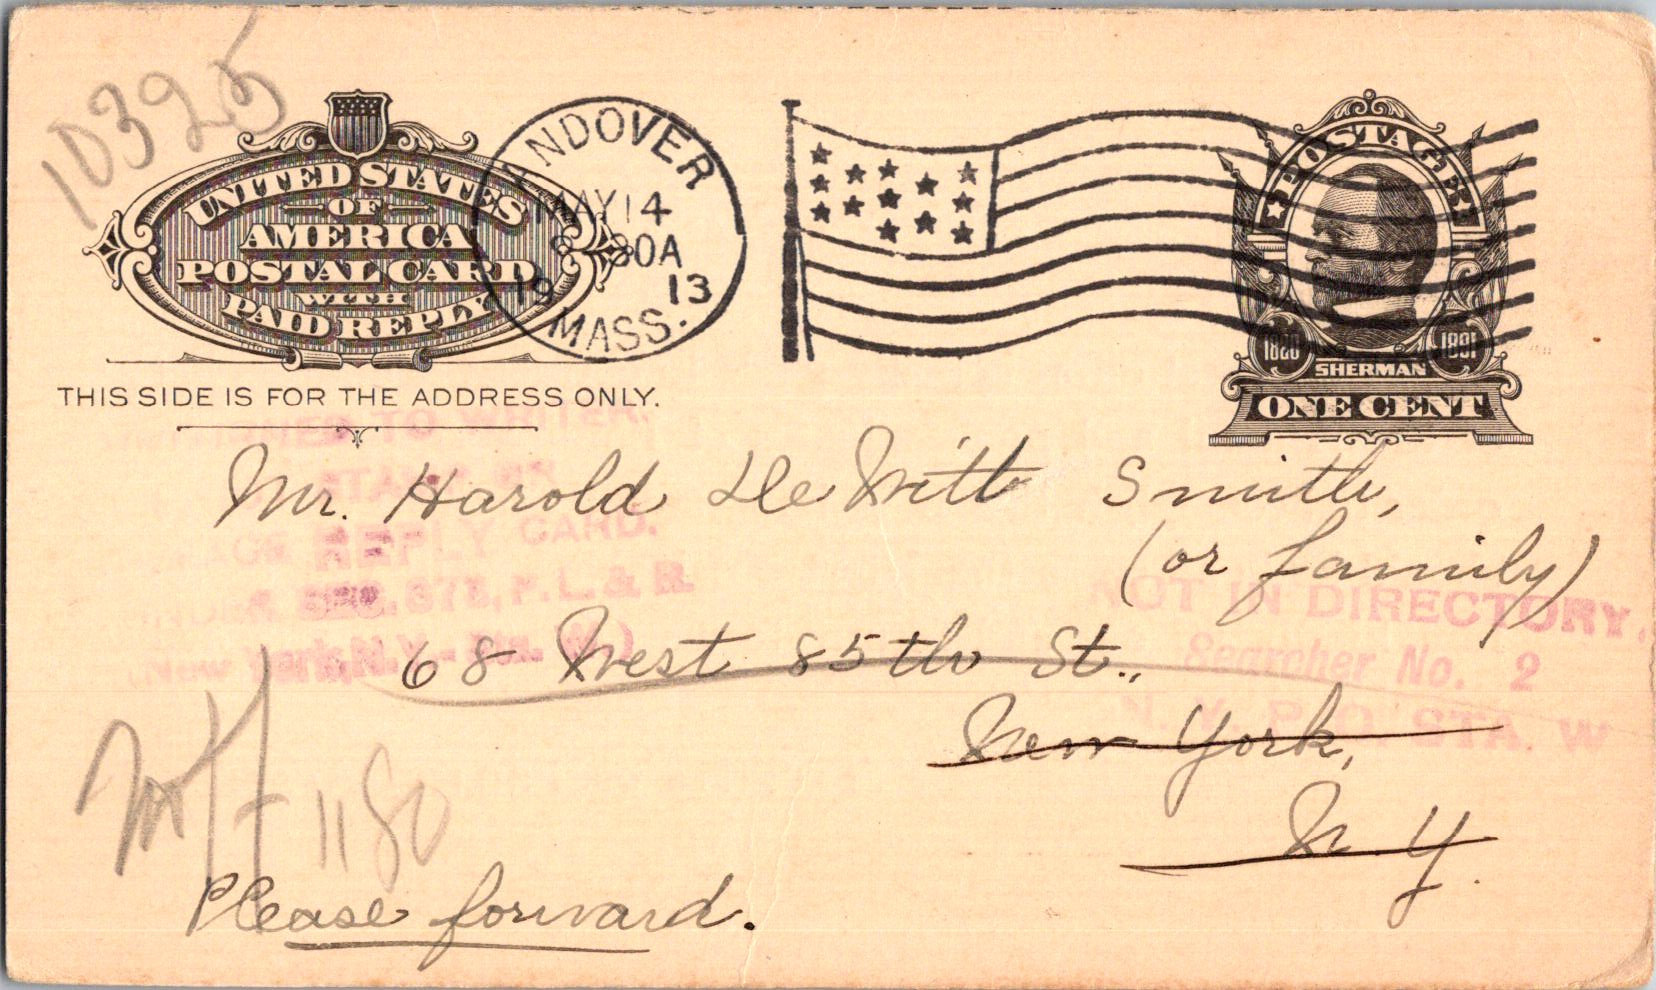 10325
UNITED STATES
OF
AMERICA
POSTAL CARD
WITH
PAID REPLY
THIS SIDE IS FOR THE ADDRESS ONLY.
ANDOVER
MAY 14
30A
19 13
MASS.
POSTAGE
1820 1891
SHERMAN
ONE CENT
TO WRITER.
REPLY CARD.
(New York, N.Y. - Sta. W.)
Mr. Harold De Witt Smith,
(or family)
68 West 85th St.,
New York,
N. Y.
NOT IN DIRECTORY.
Searcher No. 2
N. Y. P. O. STA. W
1180
Please forward.